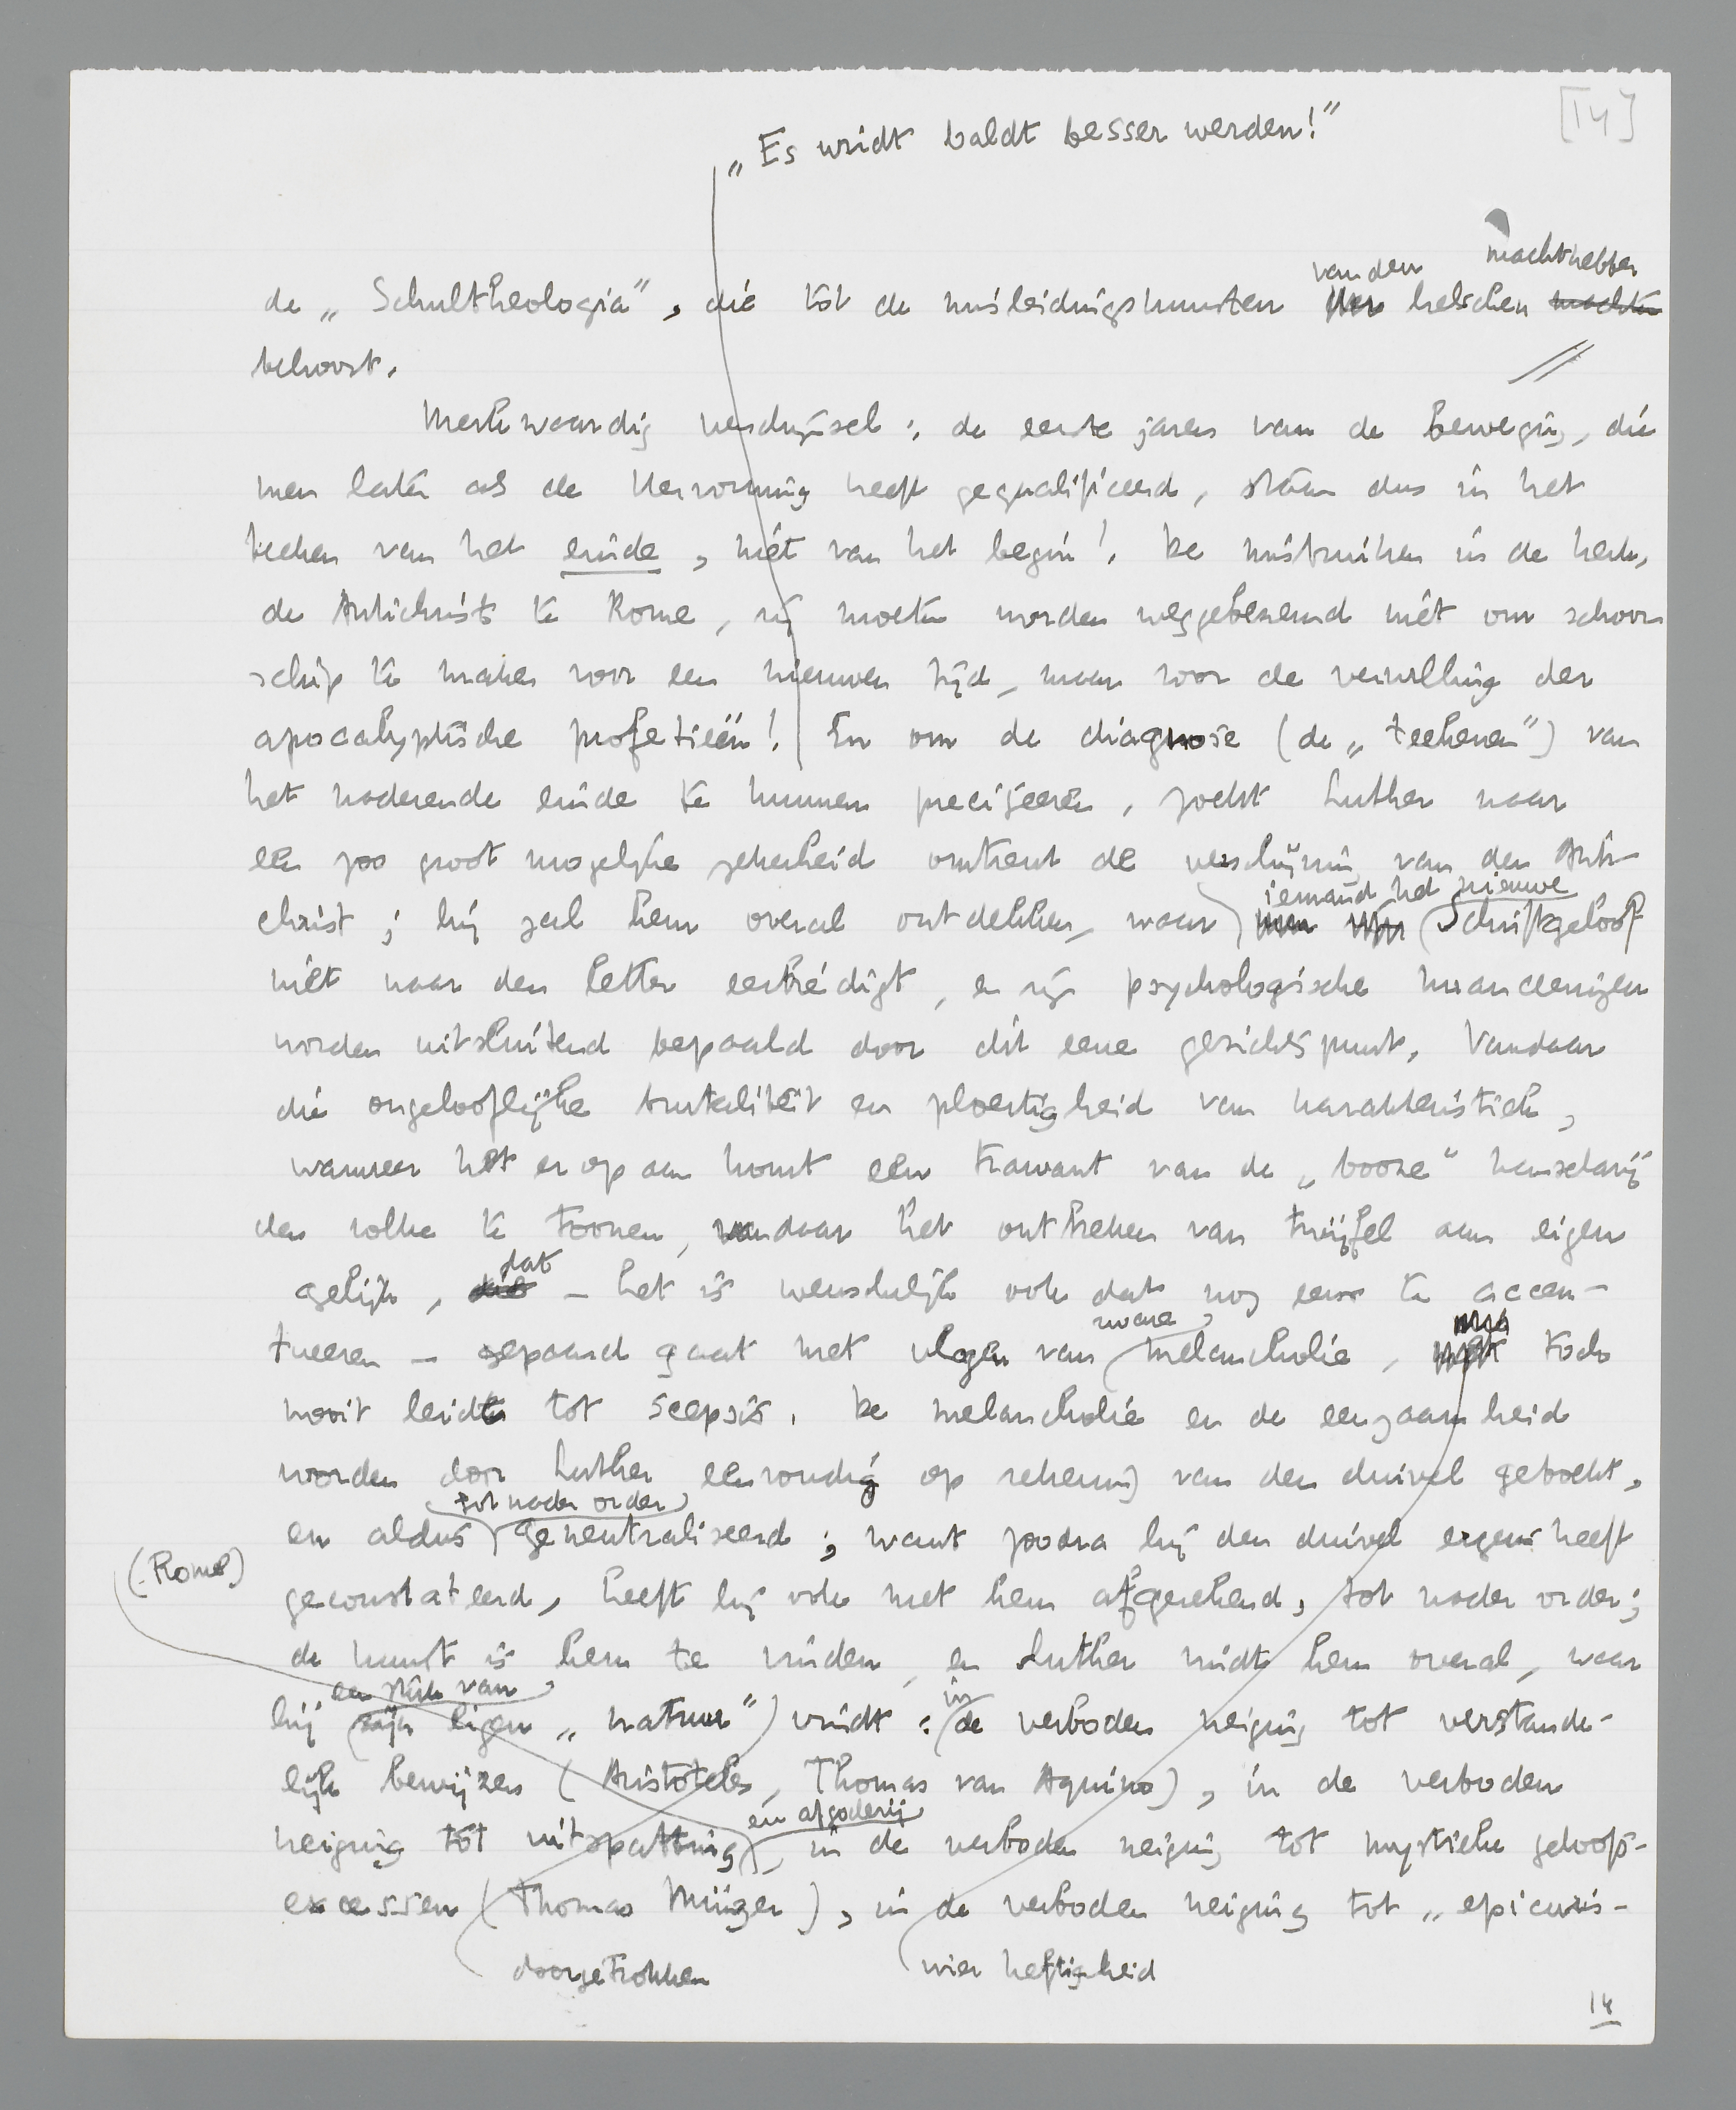 [14]
„Es wridt baldt besser werden!”
van den machthebber
de „Schultheologia”, die tot de misleidingskunsten der helschen machten
behoort.
Merkwaardig verschijnsel: de eerste jaren van de beweging, die
men later als de Hervorming heeft gequalificeerd, stáán dus in het
teeken van het einde, niét van het begin! De misbruiken in de kerk,
de Antichrist te Rome, zij moeten worden weggebezemd niét om schoon
schip te maken voor een nieuwen tijd, maar voor de vervulling der
apocalyptische profetieën! En om de diagnose (de „teekenen”) van
het naderende einde te kunnen preciseeren, zoekt Luther naar
een zoo groot mogelijke zekerheid omtrent de verschijning van den Anti-
iemand het nieuwe
christ; hij zal hem overal ontdekken, waar Schriftgeloof
niét naar den letter eerbiedigt, en zijn psychologische nuanceeringen
worden uitsluitend bepaald door dit eene gezichtspunt. Vandaar
die ongelooflijke brutaliteit en ploertigheid van karakteristiek,
wanneer het er op aan komt een trawant van de „booze” heirscharij
den volke te toonen, vandaar het ontbreken van twijfel aan eigen
dat
gelijk, die – het is wenschelijk ook dat nog eens te accen-
zware
tueeren – gepaard gaat met vlagen van melancholie, toch
nooit leidt tot scepsis. De melancholie en de eenzaamheid
worden door Luther eenvoudig op rekening van den duivel geboekt,
tot nader order
en aldus geneutraliseerd; want zoodra hij den duivel ergens heeft
(Rome)
geconstateerd, heeft hij ook met hem afgerekend, tot nader order;
de kunst is hem te vinden, en Luther vindt hem overal, waar
een stuk van
hij zijn eigen „natuur” vindt: in de verboden neiging tot verstande-
lijk bewijzen (Aristoteles, Thomas van Aquino), in de verboden
en afgoderij
neiging tot uitspatting, in de verboden neiging tot mystieke geloofs-
excessen (Thomas Münzer), in de verboden neiging tot „epicuris-
doorgetrokken wier heftigheid
14